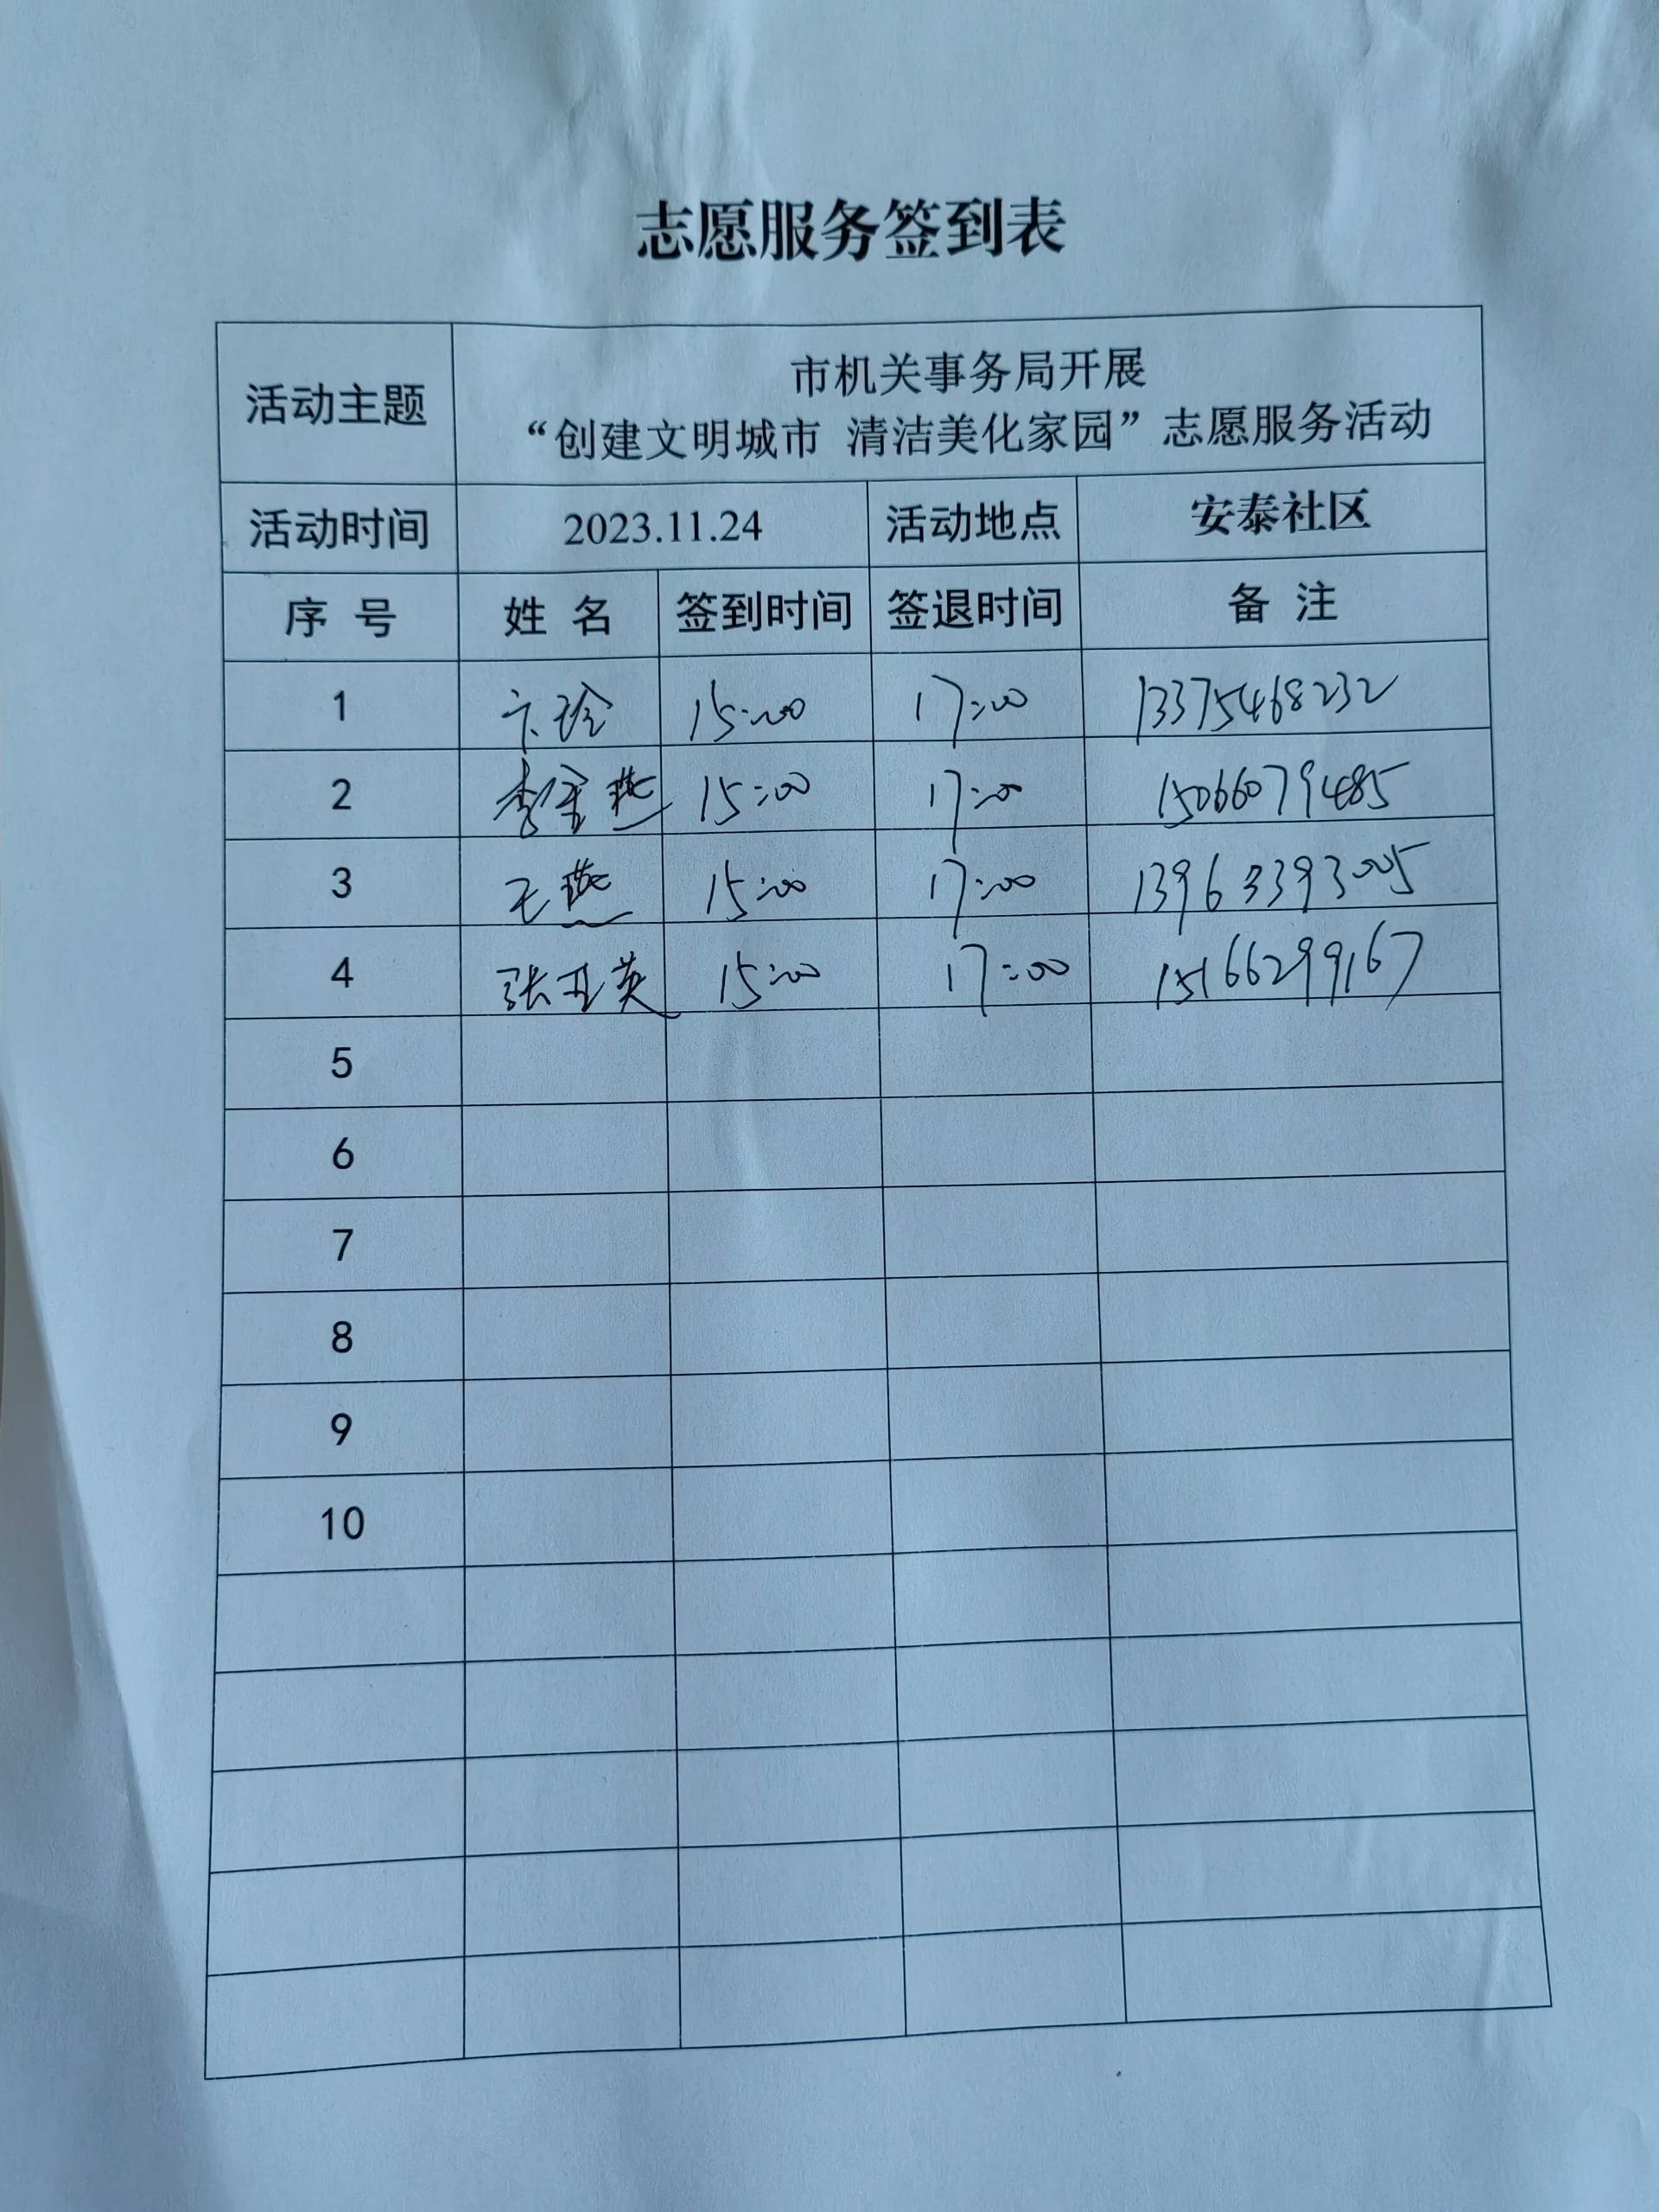 志愿服务签到表
活动主题
市机关事务局开展
“创建文明城市 清洁美化家园”志愿服务活动
活动时间 2023.11.24 活动地点 安泰社区
序 号 姓 名 签到时间 签退时间 备 注
1 卞玲 15:00 17:00 13375468232
2 李金燕 15:00 17:00 15066079485
3 王燕 15:00 17:00 13963393005
4 张亚英 15:00 17:00 15166299167
5
6
7
8
9
10